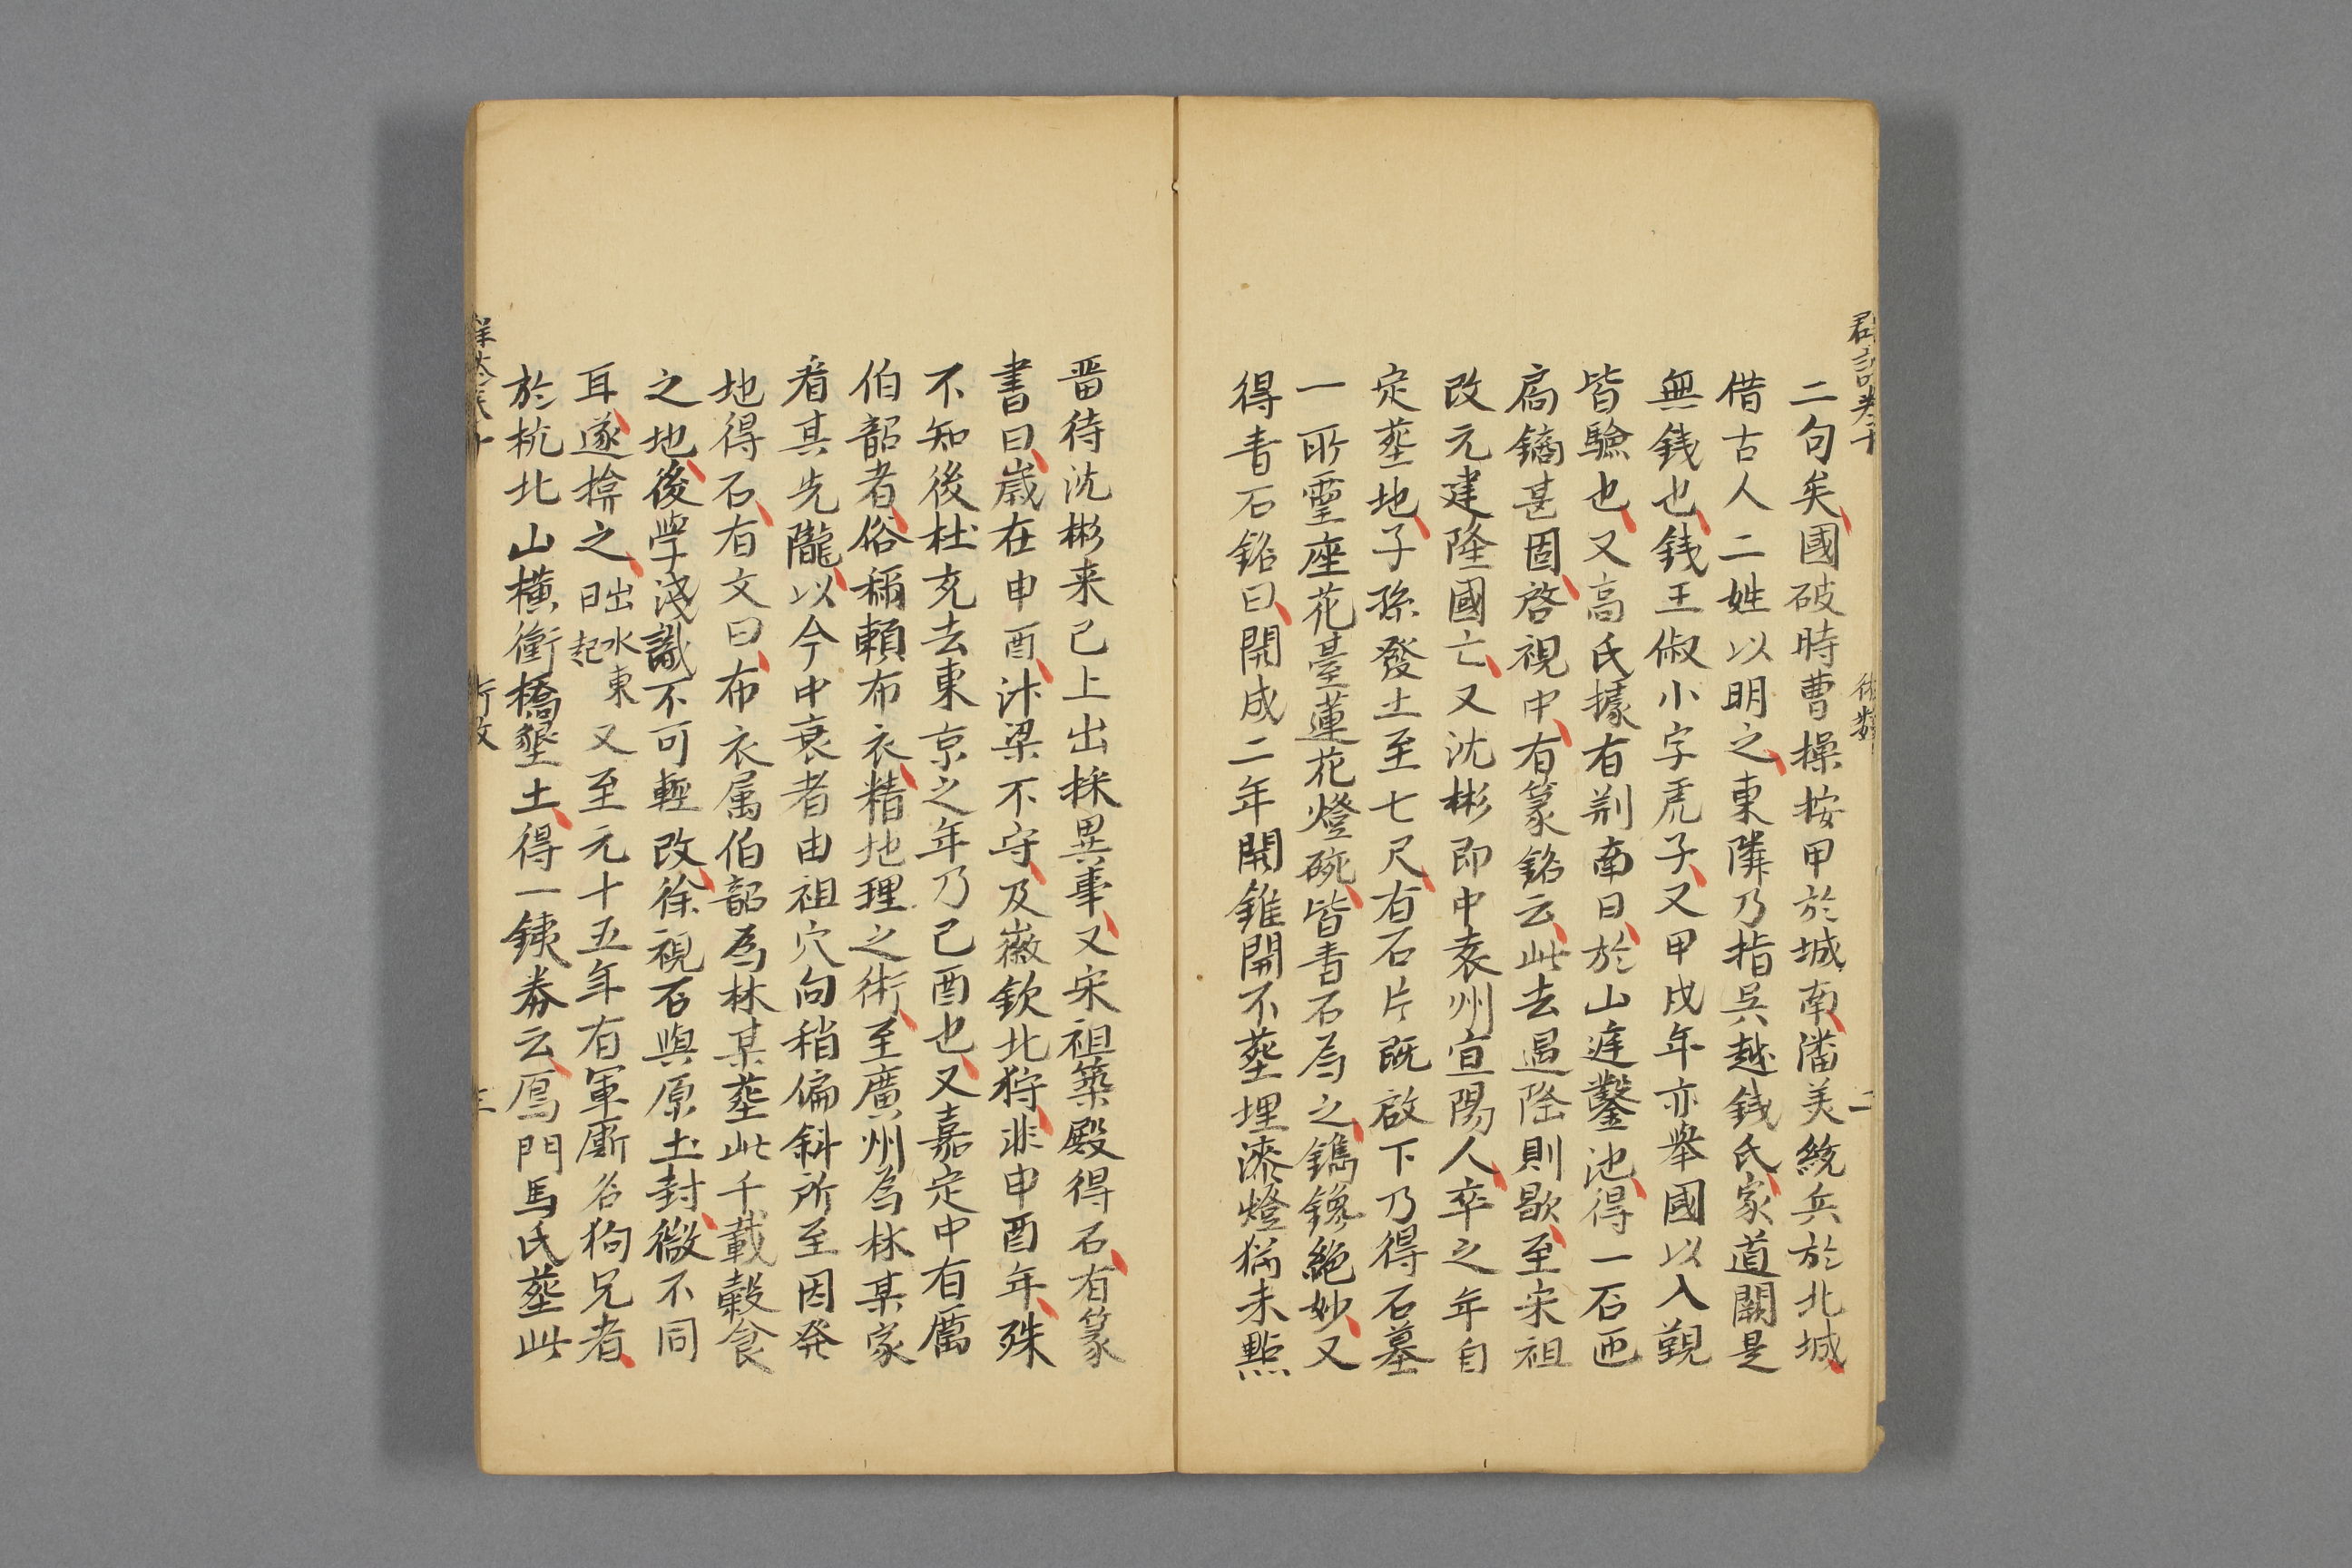 二句矣國破時曹操按甲於城南潘美統兵於北城
借古人二姓以明之東隣乃指吳越錢氏家道闕是
無銭也銭王俶小字虎子又甲戌年亦舉國以入覲
皆驗也又高氏據有荆南日於山庭鑿池得一石匣
扃鐍甚固啓視中有篆銘云此去遇陸則歇至宋祖
改元建隆國亡又沈彬即中袁州宜陽人卒之年自
定塟地子孫發土至七尺有石片既啟下乃得石墓
一所霊座花臺蓮花燈碗皆青石為之鐫鑱絶妙又
得青石銘曰開成二年開雖開不塟埋漆燈猶未點
畱待沈彬来已上出採異事又宋祖築殿得石有篆
書曰歳在申酉汴梁不守及徽欽北狩非申酉年殊
不知後杜充去東京之年乃己酉也又嘉定中有厲
伯韶者俗稱頼布衣精地理之術至廣州為林某家
看其先隴以今中衰者由祖穴向稍偏斜所至因発
地得石有文曰布衣属伯韶為林某塟此千載穀食
之地後學淺識不可輕改徐視石與原土封微不同
耳遂揜之出水東日起又至元十五年有軍廝名狗兄者
於杭北山橫衝橋墾土得一鐵券云鴈門馬氏塟此